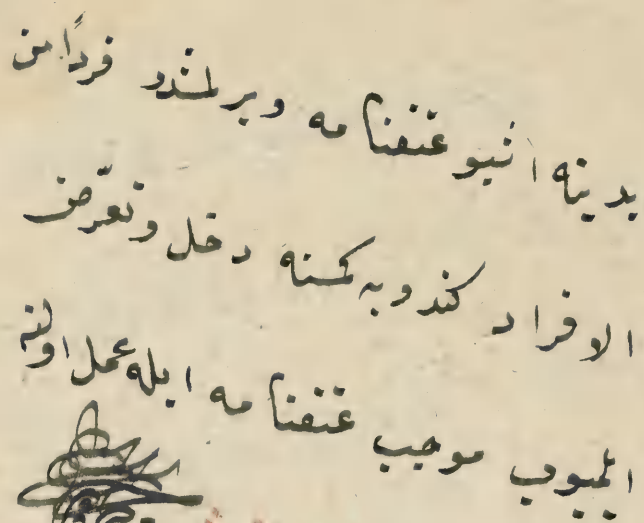 یدینه اشبو عتقنامه ویرلمشدر فرداً من
الافراد کندویه کمسنه دخل وتعرّض
ایلمیوب موجب عتقنامه ایله عمل اولنه